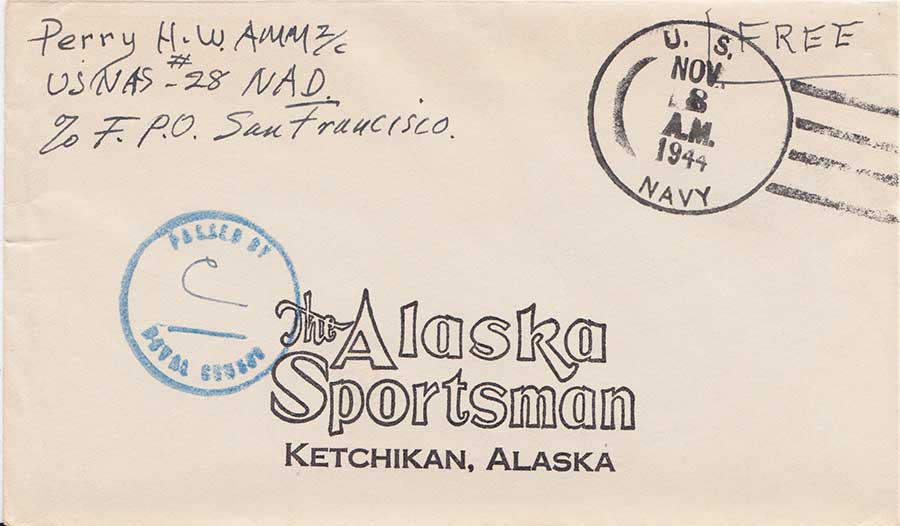 Perry H.W. AMM 2/c
USNAS #-28 NAD.
℅ F.P.O. San Francisco.
FREE
U. S.
NOV.
8
A.M.
1944
NAVY
PASSED BY
NAVAL CENSOR
The Alaska
Sportsman
KETCHIKAN, ALASKA